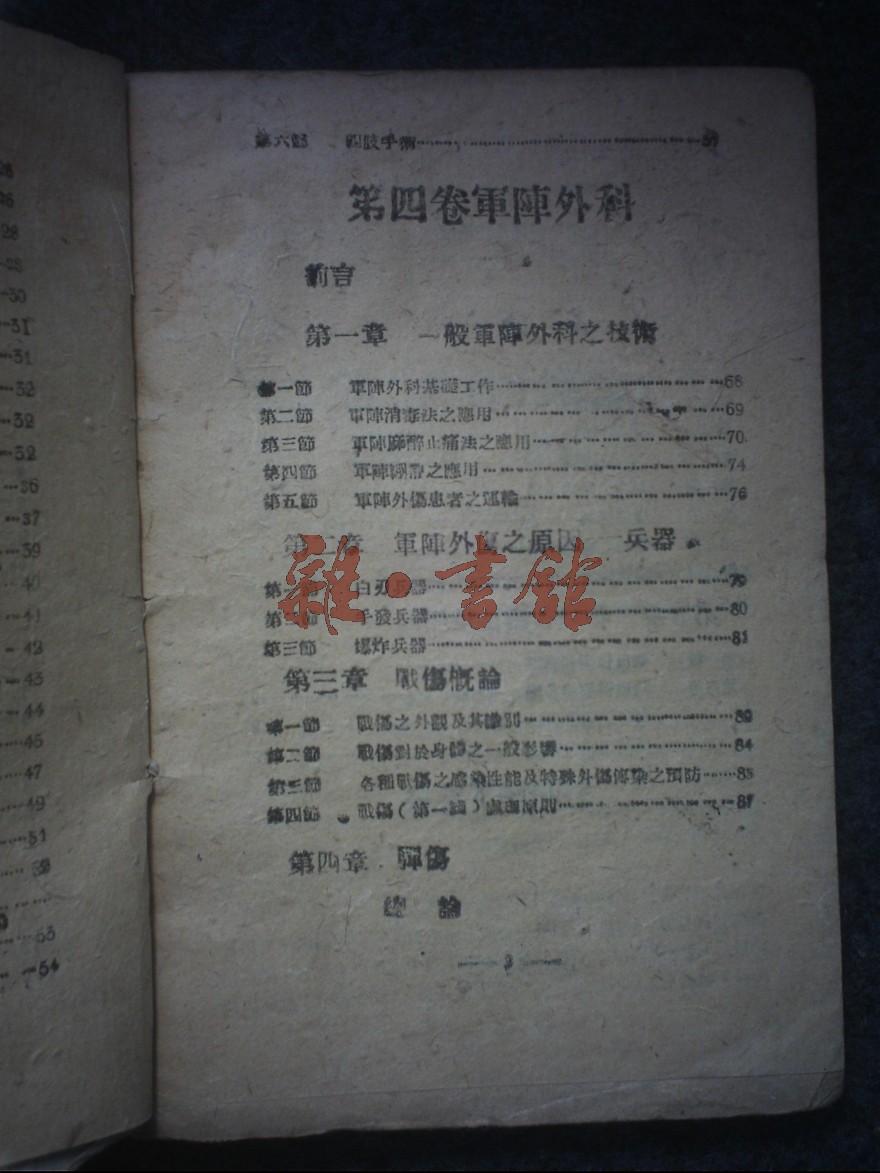 26
26
28
28
30
31
31
32
32
32
36
37
39
40
41
42
43
44
45
47
49
51
53
54
第六節 四肢手術
第四卷軍陣外科
前言
第一章 一般軍陣外科之技術
第一節 軍陣外科基礎工作……68
第二節 軍陣消毒法之應用……69
第三節 軍陣麻醉止痛法之應用……70
第四節 軍陣繃帶之應用……74
第五節 軍陣外傷患者之運輸……76
第二章 軍陣外傷之原因——兵器
第一節 白刃兵器……79
第二節 手發兵器……80
第三節 爆炸兵器……81
雜·書館
第三章 戰傷概論
第一節 戰傷之外觀及其識別
第二節 戰傷對於身體之一般影響……84
第三節 各種戰傷之感染性能及特殊外傷傳染之預防……85
第四節 戰傷(第一線)處理原則……87
第四章 彈傷
總論
—— 3 ——